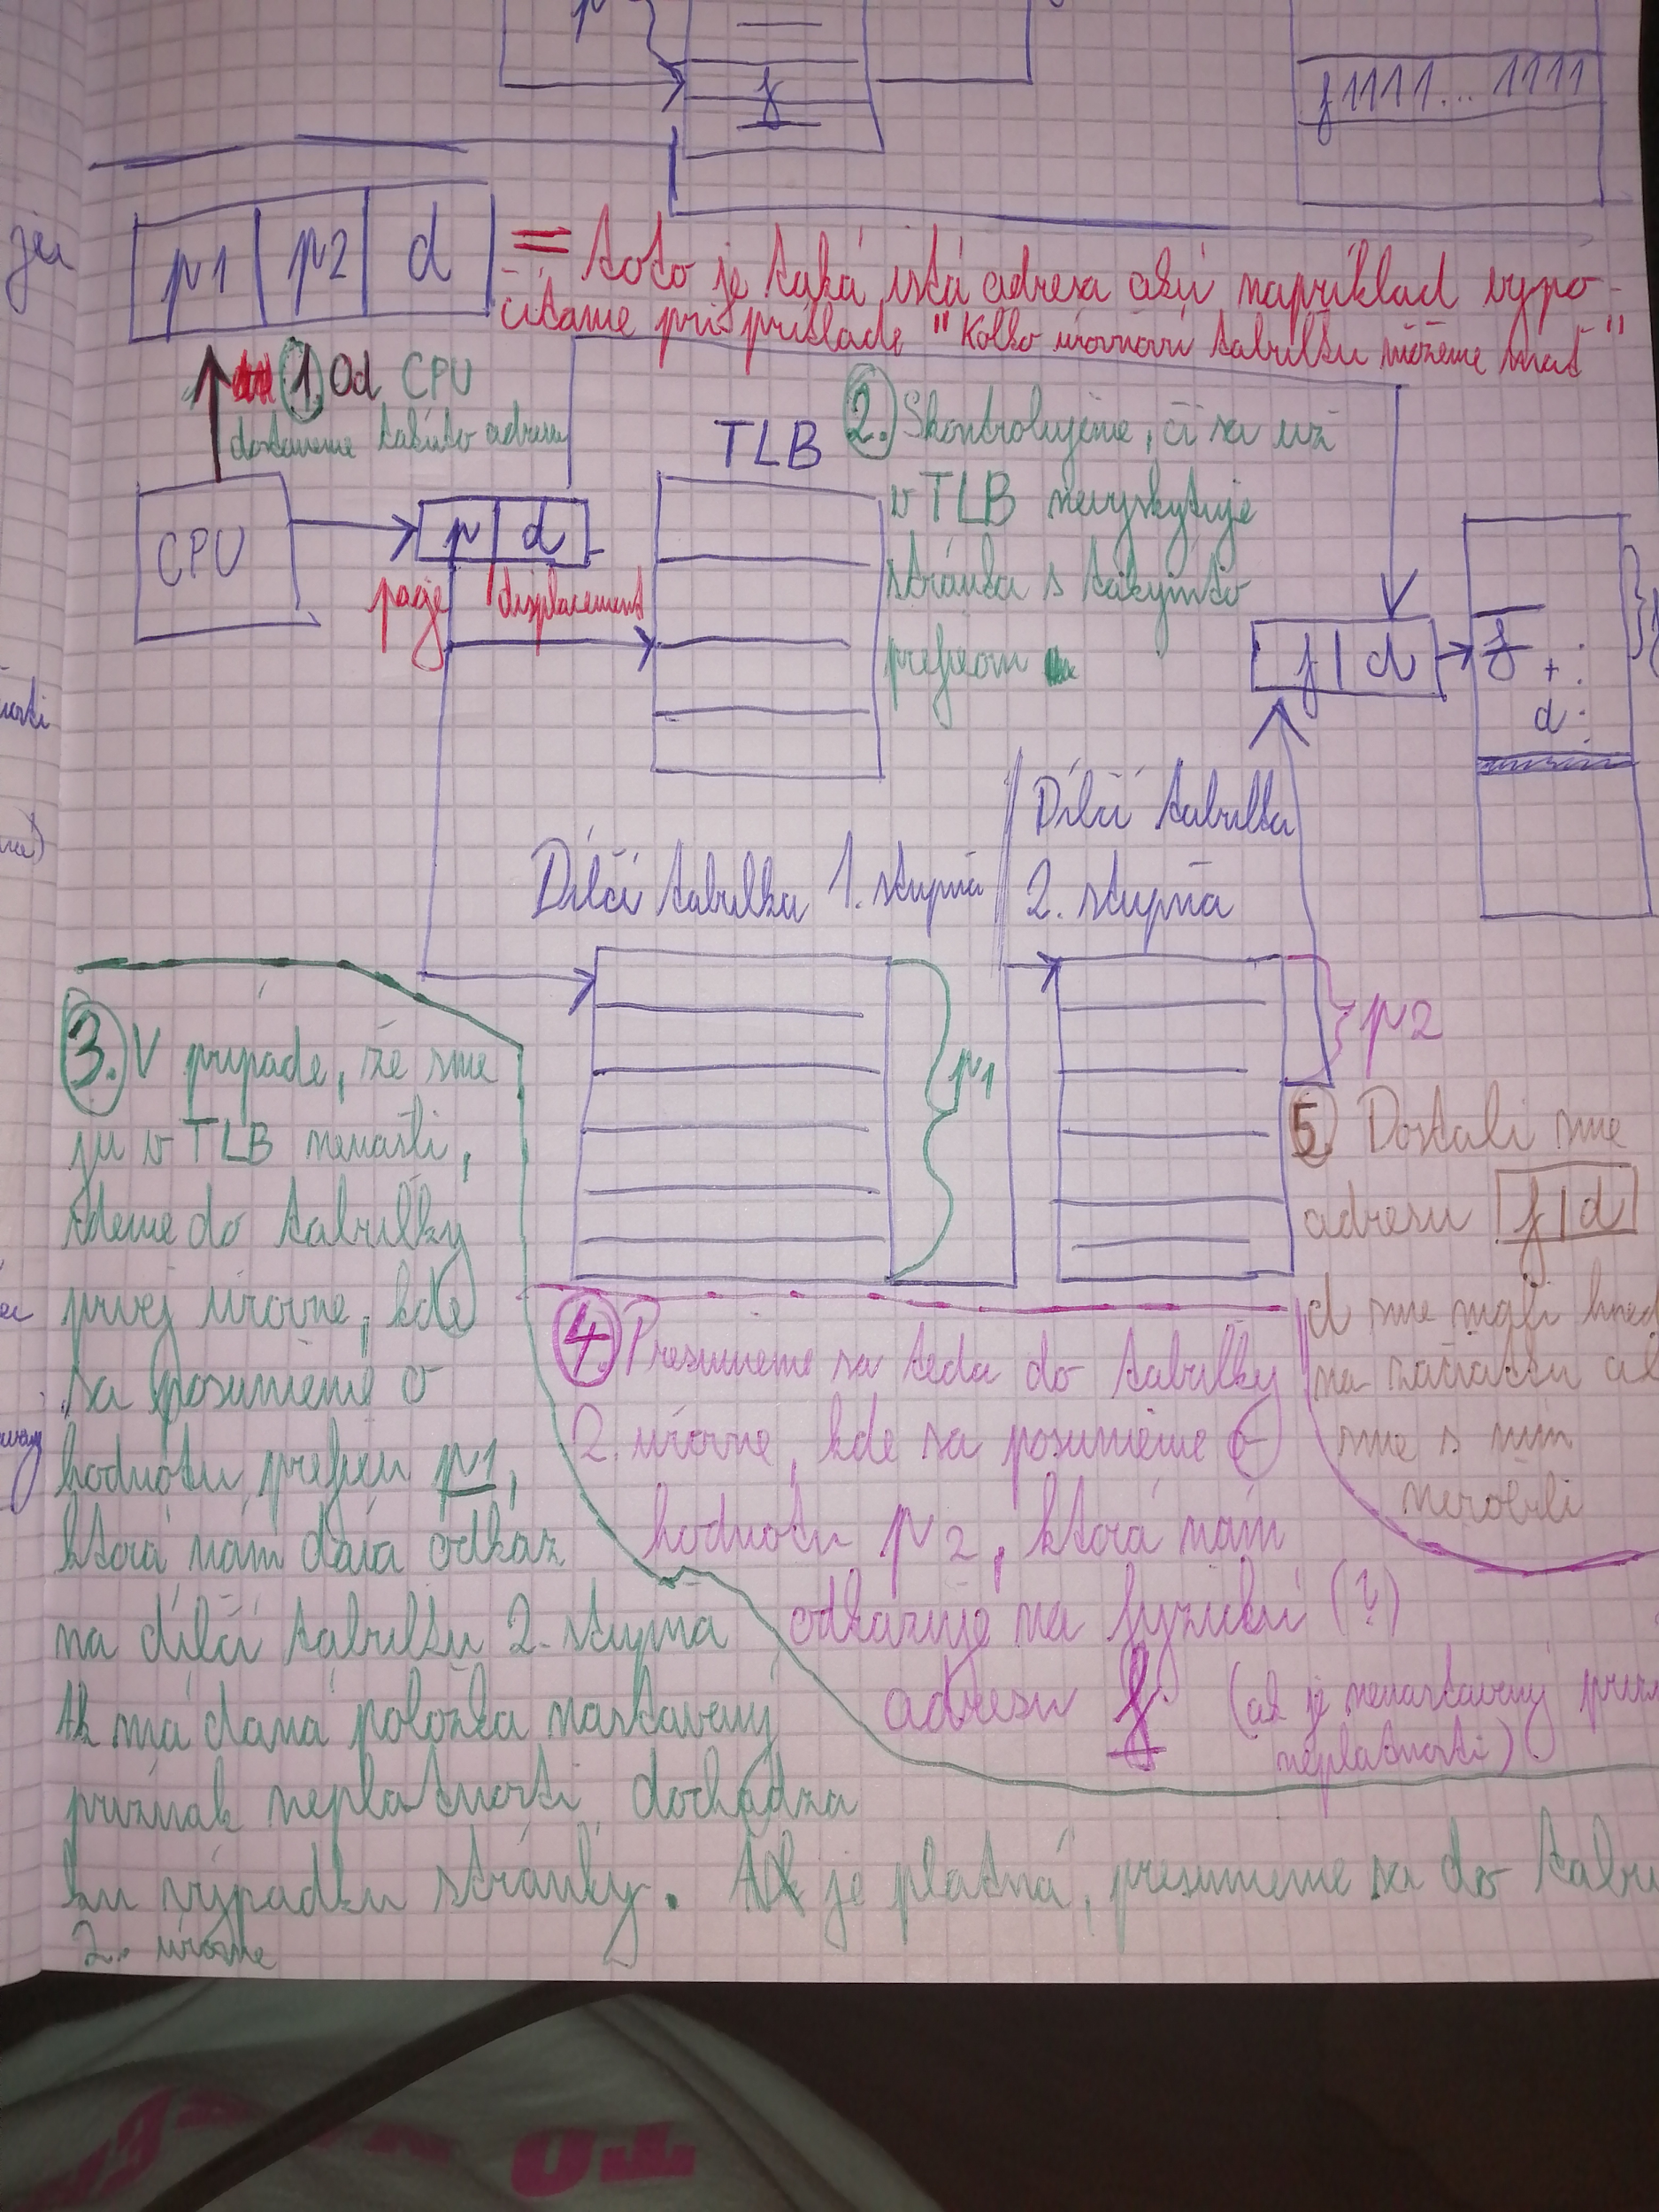 f
f1111... 1111
p1 | p2 | d
= toto je taká istá adresa akú napríklad vypo-
čítame pri príklade "Koľko úrovňovú tabuľku môžeme mať"
1. Od CPU
dostaneme takúto adresu
TLB
2. Skontrolujeme, či sa už
v TLB nevyskytuje
stránka s takýmto
prefixom
CPU
p | d
page | displacement
f | d
f + :
d :
Dílčí tabulka 1. stupňa
Dílčí tabulka
2. stupňa
p1
p2
3. V prípade, že sme
ju v TLB nenašli,
ideme do tabuľky
prvej úrovne, kde
sa posunieme o
hodnotu prefixu p1,
ktorá nám dáva odkaz
na dílčí tabuľku 2. stupňa
Ak má daná položka nastavený
príznak neplatnosti, dochádza
ku výpadku stránky. Ak je platná, presunieme sa do
2. úrovne
4. Presunieme sa teda do tabuľky
2. úrovne, kde sa posunieme o
hodnotu p2, ktorá nám
odkazuje na fyzickú (?)
adresu f (ak je nenastavený
neplatnosti)
5. Dostali sme
adresu f|d
d sme mali hneď
na začiatku
sme s ním
nerobili